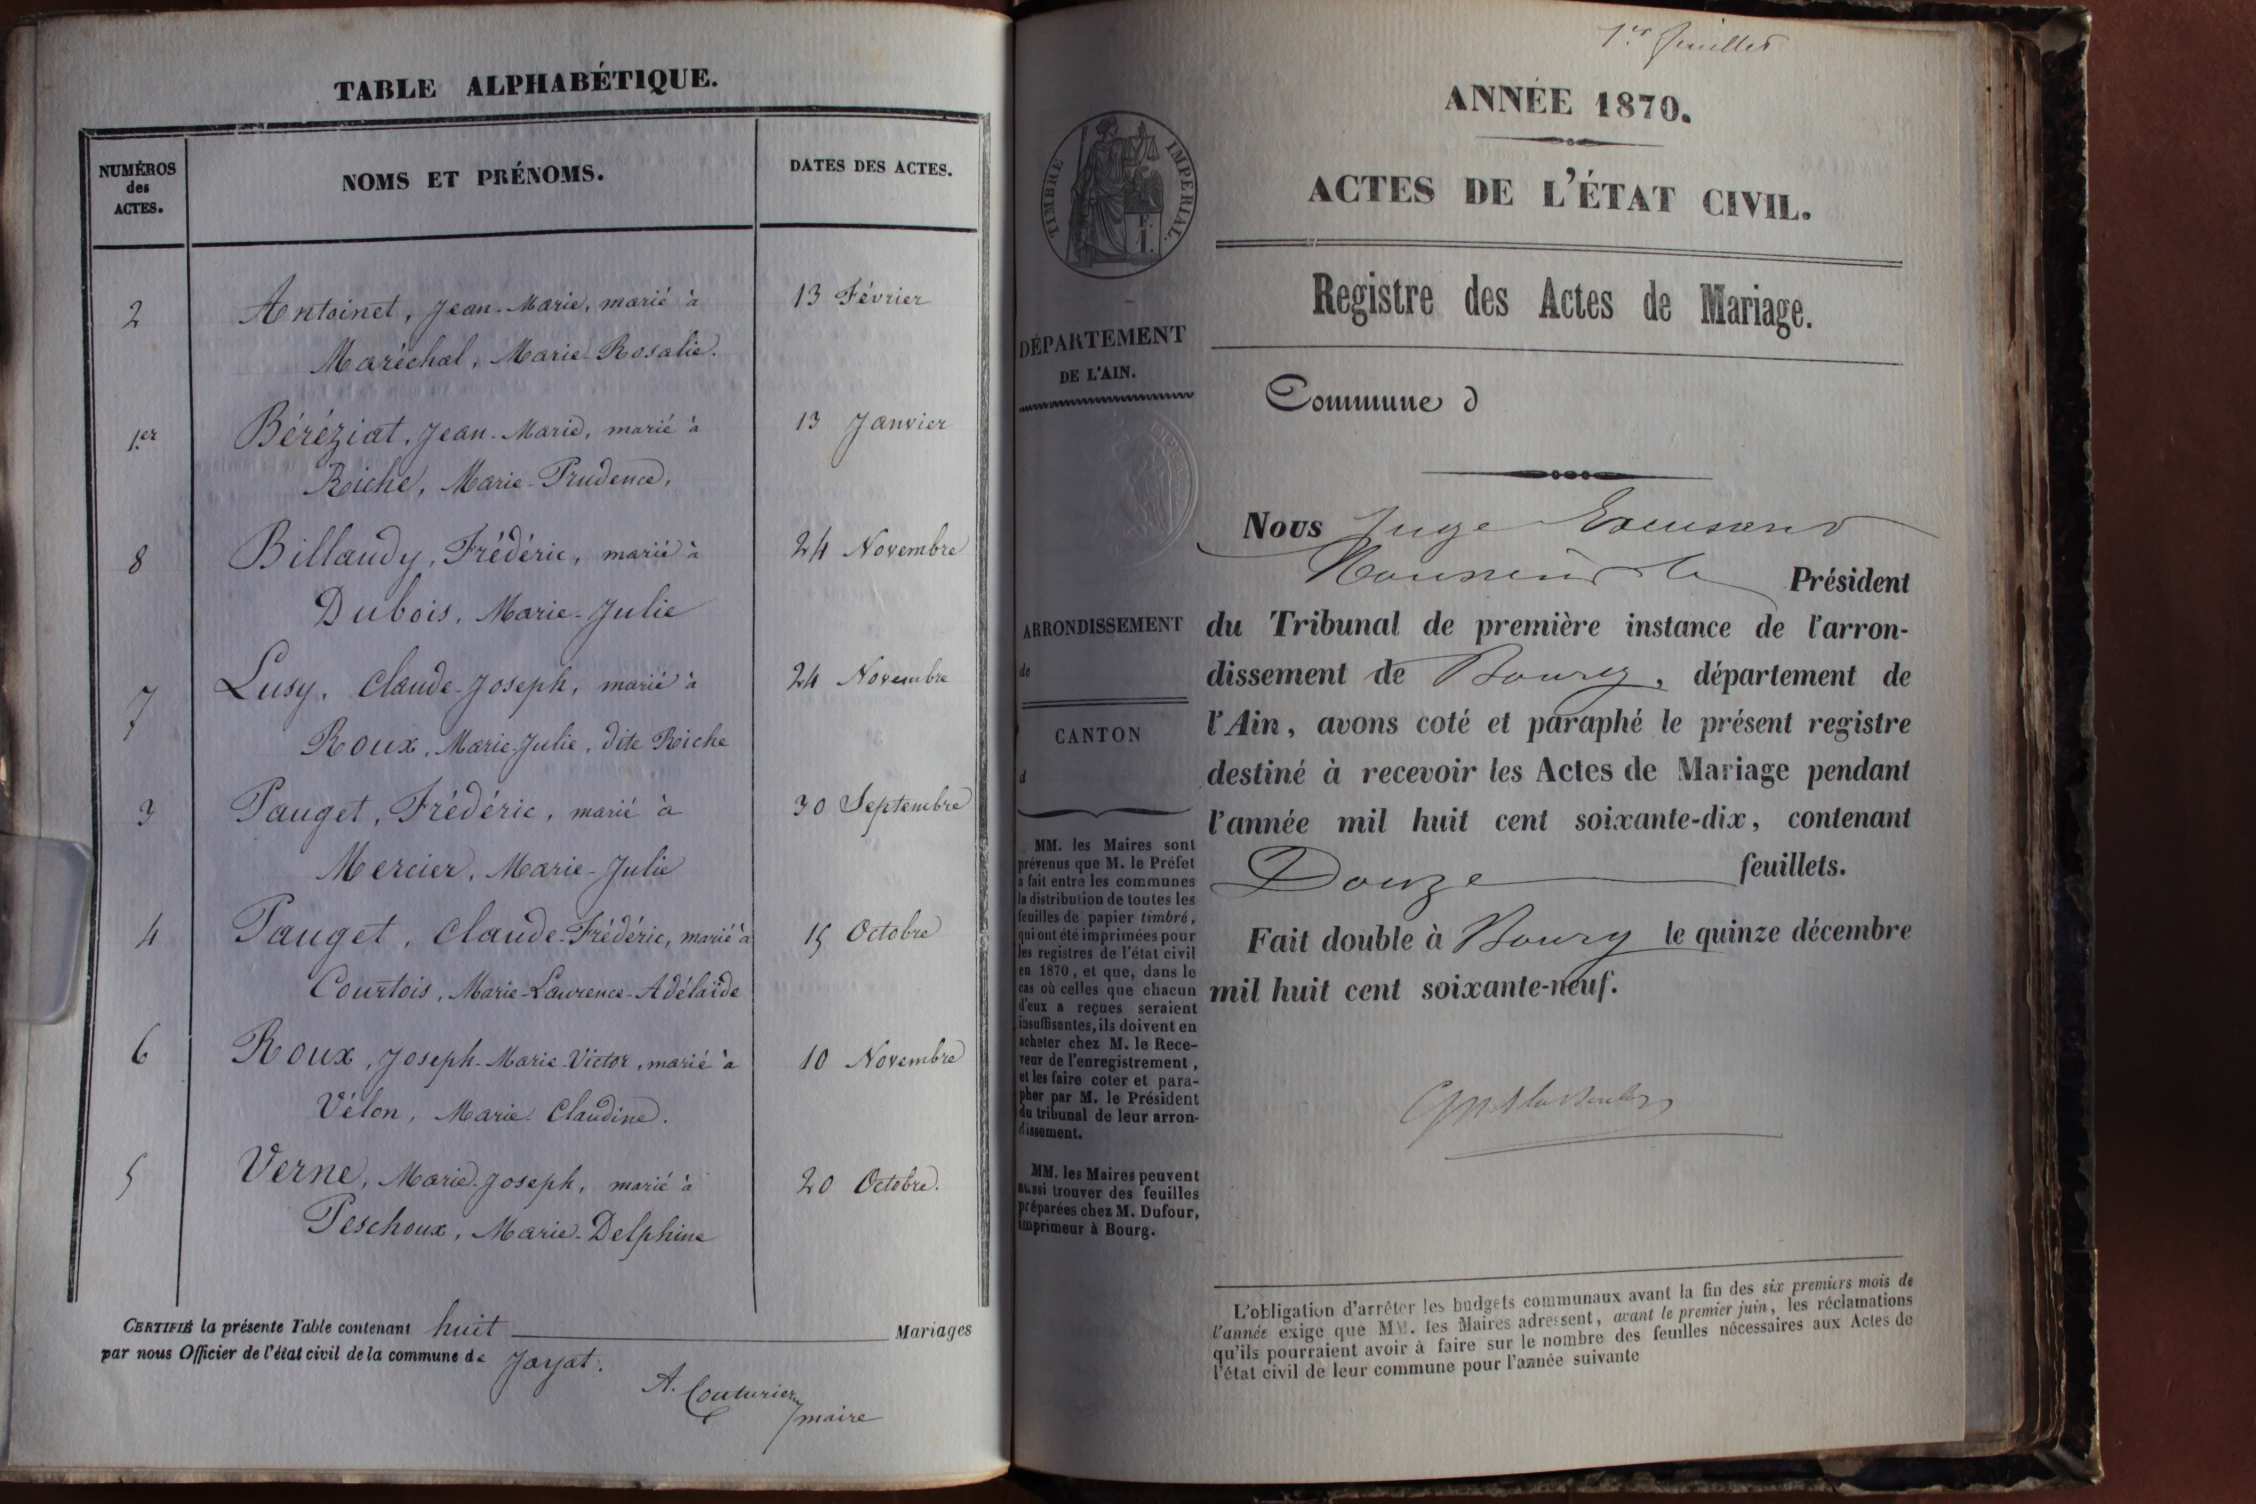 TABLE ALPHABÉTIQUE.
NUMÉROS
des
ACTES.
NOMS ET PRÉNOMS.
DATES DES ACTES.
2 Antoinet, Jean-Marie, marié à 13 Février
Maréchal, Marie-Rosalie.
1er Béréziat, Jean-Marie, marié à 13 Janvier
Riche, Marie-Prudence,
8 Billaudy, Frédéric, marié à 24 Novembre
Dubois, Marie-Julie
7 Lusy, Claude-Joseph, marié à 24 Novembre
Roux, Marie-Julie, dite Riche
3 Pauget, Frédéric, marié à 30 Septembre
Mercier, Marie-Julie
4 Pauget, Claude-Frédéric, marié à 15 Octobre
Courtois, Marie-Laurence-Adélaïde
6 Roux, Joseph-Marie-Victor, marié à 10 Novembre
Vélon, Marie-Claudine.
5 Verne, Marie-Joseph, marié à 20 Octobre.
Peschoux, Marie-Delphine
CERTIFIÉ la présente Table contenant huit Mariages
par nous Officier de l'état civil de la commune de Jayat.
A. Couturier
maire
1er feuillet
ANNÉE 1870.
ACTES DE L'ÉTAT CIVIL.
Registre des Actes de Mariage.
TIMBRE IMPERIAL.
F.
1.
DÉPARTEMENT
DE L'AIN.
Commune d
Nous Juge
Monsieur le Président
du Tribunal de première instance de l'arron-
dissement de Bourg, département de
l'Ain, avons coté et paraphé le présent registre
destiné à recevoir les Actes de Mariage pendant
l'année mil huit cent soixante-dix, contenant
Douze feuillets.
Fait double à Bourg le quinze décembre
mil huit cent soixante-neuf.
ARRONDISSEMENT
de
CANTON
d
MM. les Maires sont
prévenus que M. le Préfet
a fait entre les communes
la distribution de toutes les
feuilles de papier timbré,
qui ont été imprimées pour
les registres de l'état civil
en 1870, et que, dans le
cas où celles que chacun
d'eux a reçues seraient
insuffisantes, ils doivent en
acheter chez M. le Rece-
veur de l'enregistrement,
et les faire coter et para-
pher par M. le Président
du tribunal de leur arron-
dissement.
MM. les Maires peuvent
aussi trouver des feuilles
préparées chez M. Dufour,
imprimeur à Bourg.
L'obligation d'arrêter les budgets communaux avant la fin des six premiers mois de
l'année exige que MM. les Maires adressent, avant le premier juin, les réclamations
qu'ils pourraient avoir à faire sur le nombre des feuilles nécessaires aux Actes de
l'état civil de leur commune pour l'année suivante